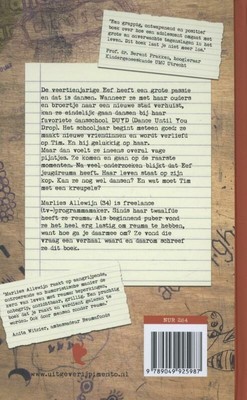 "Een grappig, ontwapenend en positief
boek over hoe een adolescent omgaat met
grote en onverwachte tegenslagen in het
leven. Dit boek laat je niet meer los."
Prof. Dr. Berent Prakken, hoogleraar
Kindergeneeskunde UMC Utrecht
De veertienjarige Eef heeft een grote passie
en dat is dansen. Wanneer ze met haar ouders
en broertje naar een nieuwe stad verhuist,
kan ze eindelijk gaan dansen bij haar
favoriete dansschool DUYD (Dance Until You
Drop). Het schooljaar begint meteen goed: ze
maakt nieuwe vriendinnen en wordt verliefd
op Tim. En hij gelukkig op haar.
Maar dan voelt ze ineens overal vage
pijntjes. Ze komen en gaan op de raarste
momenten. Na veel onderzoeken blijkt dat Eef
jeugdreuma heeft. Haar leven staat op zijn
kop. Kan ze nog wel dansen? En wat moet Tim
met een kreupele?
Marlies Allewijn (34) is freelance
(tv-)programmamaker. Sinds haar twaalfde
heeft ze reuma. Als beginnend puber vond
ze het heel erg lastig om reuma te hebben,
want hoe ga je daarmee om? Ze vond die
vraag een verhaal waard en daarom schreef
ze dit boek.
"Marlies Allewijn raakt op aangrijpende,
ontroerende en humoristische manier de
kern van leven met reuma: beperkingen,
onbegrip, onzichtbaar, grillig. Een prachtig
boek dat je raakt en verdient gelezen te
worden. Ook door mensen zonder reuma."
Anita Witzier, ambassadeur Reumafonds
www.uitgeverijpimento.nl
NUR 284
9 789049 925987